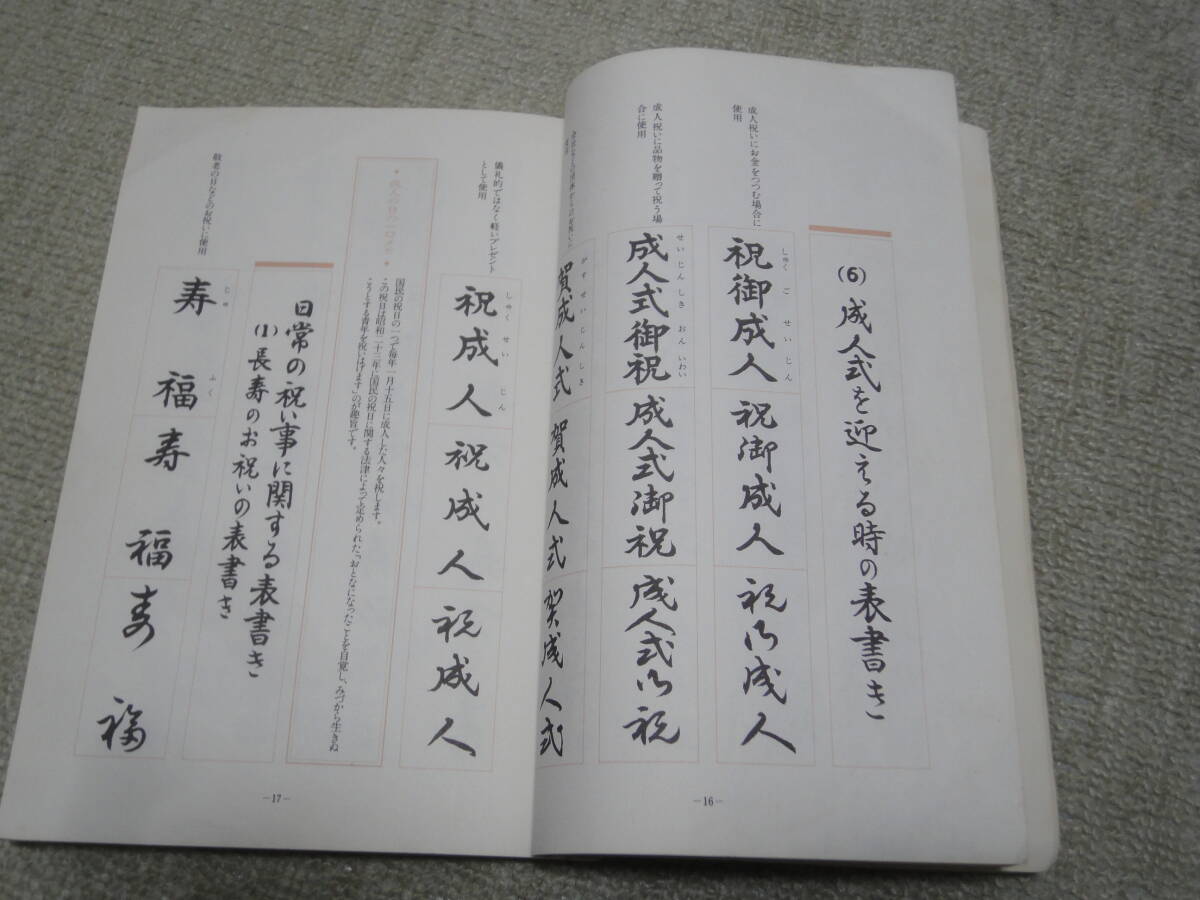 (6) 成人式を迎える時の表書き
成人祝いにお金をつつむ場合に
使用
しゅく ご せい じん
祝御成人 祝御成人 祝御成人
成人祝いに品物を贈って祝う場
合に使用
せい じん しき おん いわい
成人式御祝 成人式御祝 成人式御祝
が す せい じん しき
賀成人式 賀成人式 賀成人式
—16—
儀礼的ではなく軽いプレゼント
として使用
しゅく せい じん
祝成人 祝成人 祝成人
国民の祝日の一つで毎年一月十五日に成人した人々を祝します。
この祝日は昭和二十三年に国民の祝日に関する法律によって定められた「おとなになったことを自覚し、みづから生きぬ
こうとする青年を祝いはげます」のが趣旨です。
日常の祝い事に関する表書き
(1) 長寿のお祝いの表書き
敬老の日などのお祝いに使用
じゅ ふく
寿福 寿福 寿福
—17—